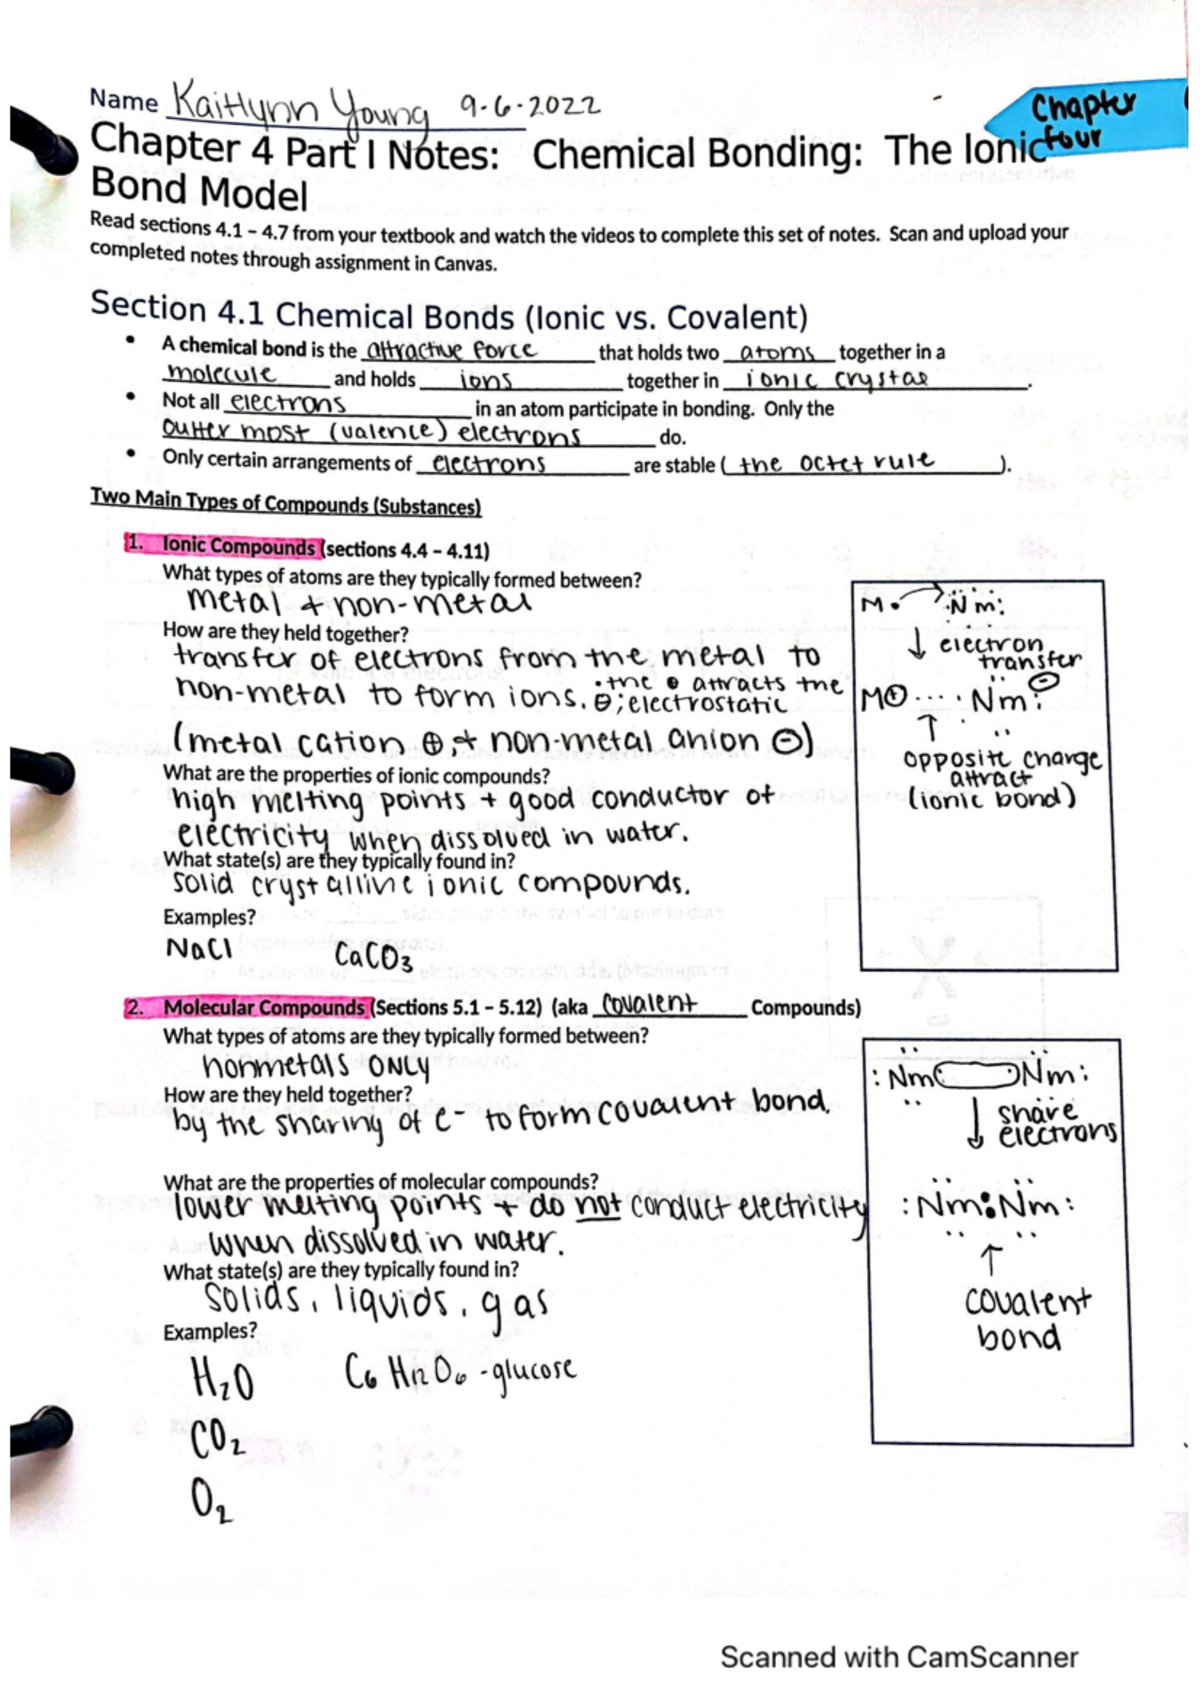 Name Kaitlynn Young 9-6-2022
Chapter four
Chapter 4 Part I Notes: Chemical Bonding: The Ionic
Bond Model
Read sections 4.1 – 4.7 from your textbook and watch the videos to complete this set of notes. Scan and upload your
completed notes through assignment in Canvas.
Section 4.1 Chemical Bonds (Ionic vs. Covalent)
• A chemical bond is the attractive force that holds two atoms together in a
molecule and holds ions together in ionic crystae.
• Not all electrons in an atom participate in bonding. Only the
outter most (valence) electrons do.
• Only certain arrangements of electrons are stable (the octet rule).
Two Main Types of Compounds (Substances)
1. Ionic Compounds (sections 4.4 – 4.11)
What types of atoms are they typically formed between?
metal + non-metal
How are they held together?
transfer of electrons from the metal to
non-metal to form ions. • the ⊕ attracts the
⊖; electrostatic
(metal cation ⊕ + non-metal anion ⊖)
What are the properties of ionic compounds?
high melting points + good conductor of
electricity when dissolved in water.
What state(s) are they typically found in?
solid crystalline ionic compounds.
Examples?
NaCl CaCO3
M• Nm:
↓ electron
transfer
M⊕ .... Nm: ⊖
↑
opposite charge
attract
(ionic bond)
2. Molecular Compounds (Sections 5.1 – 5.12) (aka Covalent Compounds)
What types of atoms are they typically formed between?
nonmetals ONLY
How are they held together?
by the sharing of e- to form covalent bond.
What are the properties of molecular compounds?
lower melting points + do not conduct electricity
when dissolved in water.
What state(s) are they typically found in?
Solids, liquids, gas
Examples?
H2O C6H12O6 -glucose
CO2
O2
:Nm Nm:
↓ share
electrons
:Nm:Nm:
↑
covalent
bond
Scanned with CamScanner